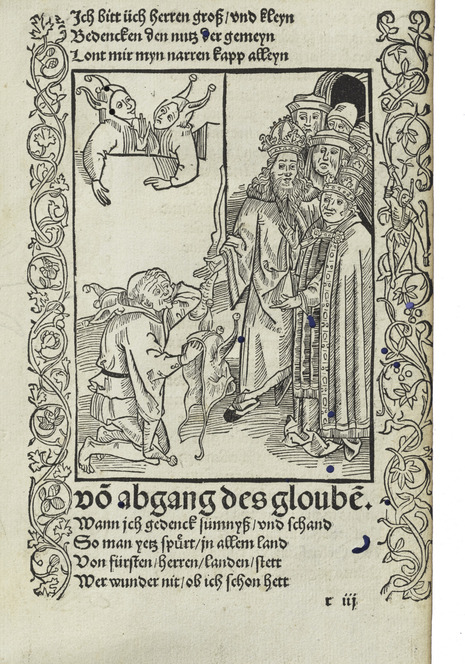 Ich bitt üch herren groß/ vnd kleyn
Bedencken den nutz der gemeyn
Lont mir myn narren kapp alleyn
vō abgang des gloubē.
Wann ich gedenck sümnyß/ vnd schand
So man yetz spu̍rt/ in allem land
Von fürsten/ herren/ landen/ stett
Wer wunder nit/ ob ich schon hett
r iij